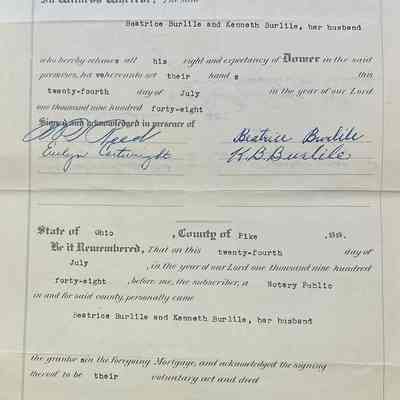 In Witness Whereof, The said
Beatrice Burlile and Kenneth Burlile, her husband
who hereby release all his right and expectancy of Dower in the said
premises, have hereunto set their hand s this
twenty-fourth day of July in the year of our Lord
one thousand nine hundred forty-eight
Signed and acknowledged in presence of
Reed Beatrice Burlile
Evelyn Cartwright K.B. Burlile
State of Ohio , County of Pike , SS.
Be it Remembered, That on this twenty-fourth day of
July , in the year of our Lord one thousand nine hundred
forty-eight , before me, the subscriber, a Notary Public
in and for said county, personally came
Beatrice Burlile and Kenneth Burlile, her husband
the grantor s in the foregoing Mortgage, and acknowledged the signing
thereof to be their voluntary act and deed